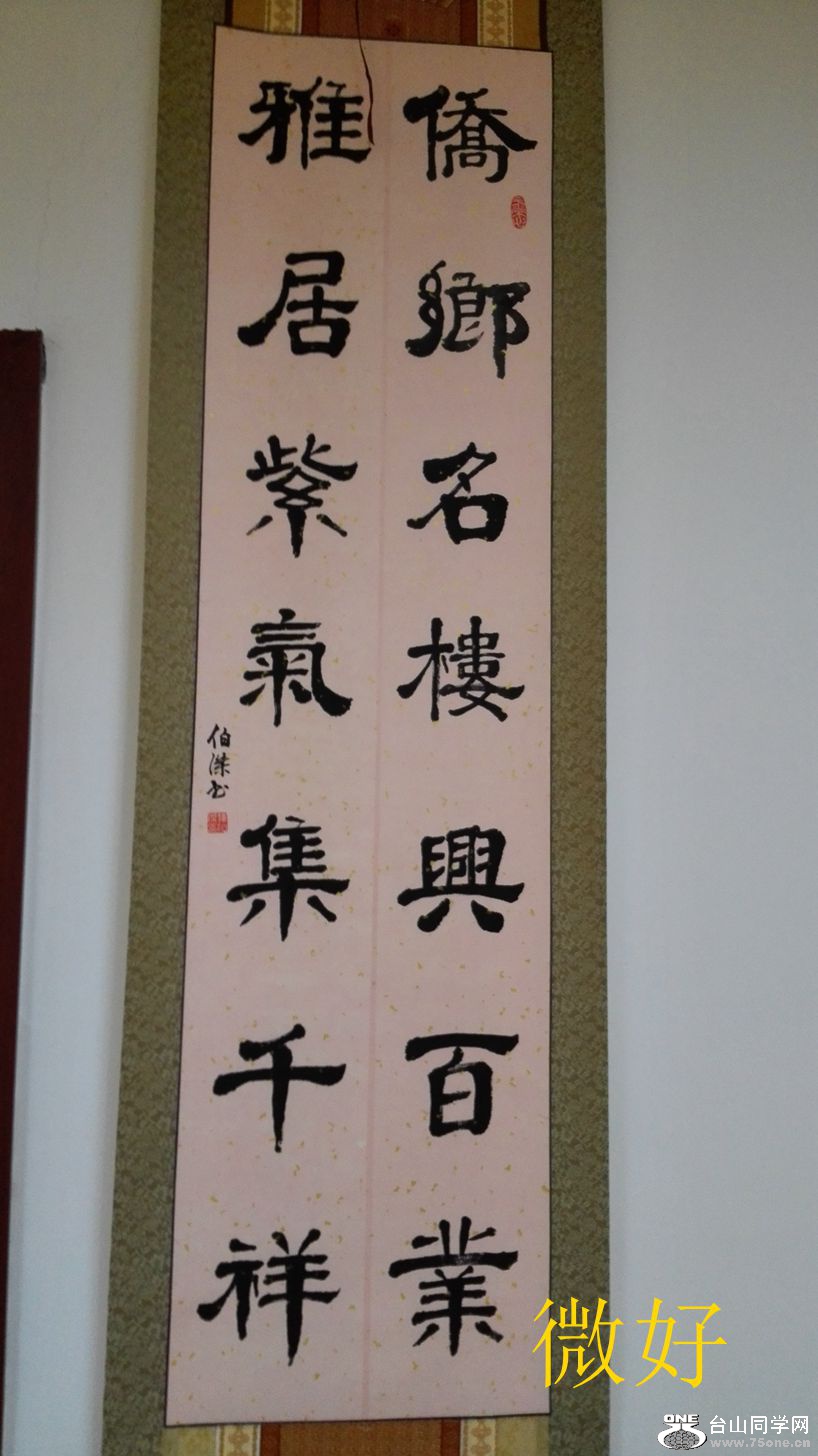 僑鄉名樓興百業
雅居紫氣集千祥
伯傑书
微好
ONE
台山同学网
www.75one.cn